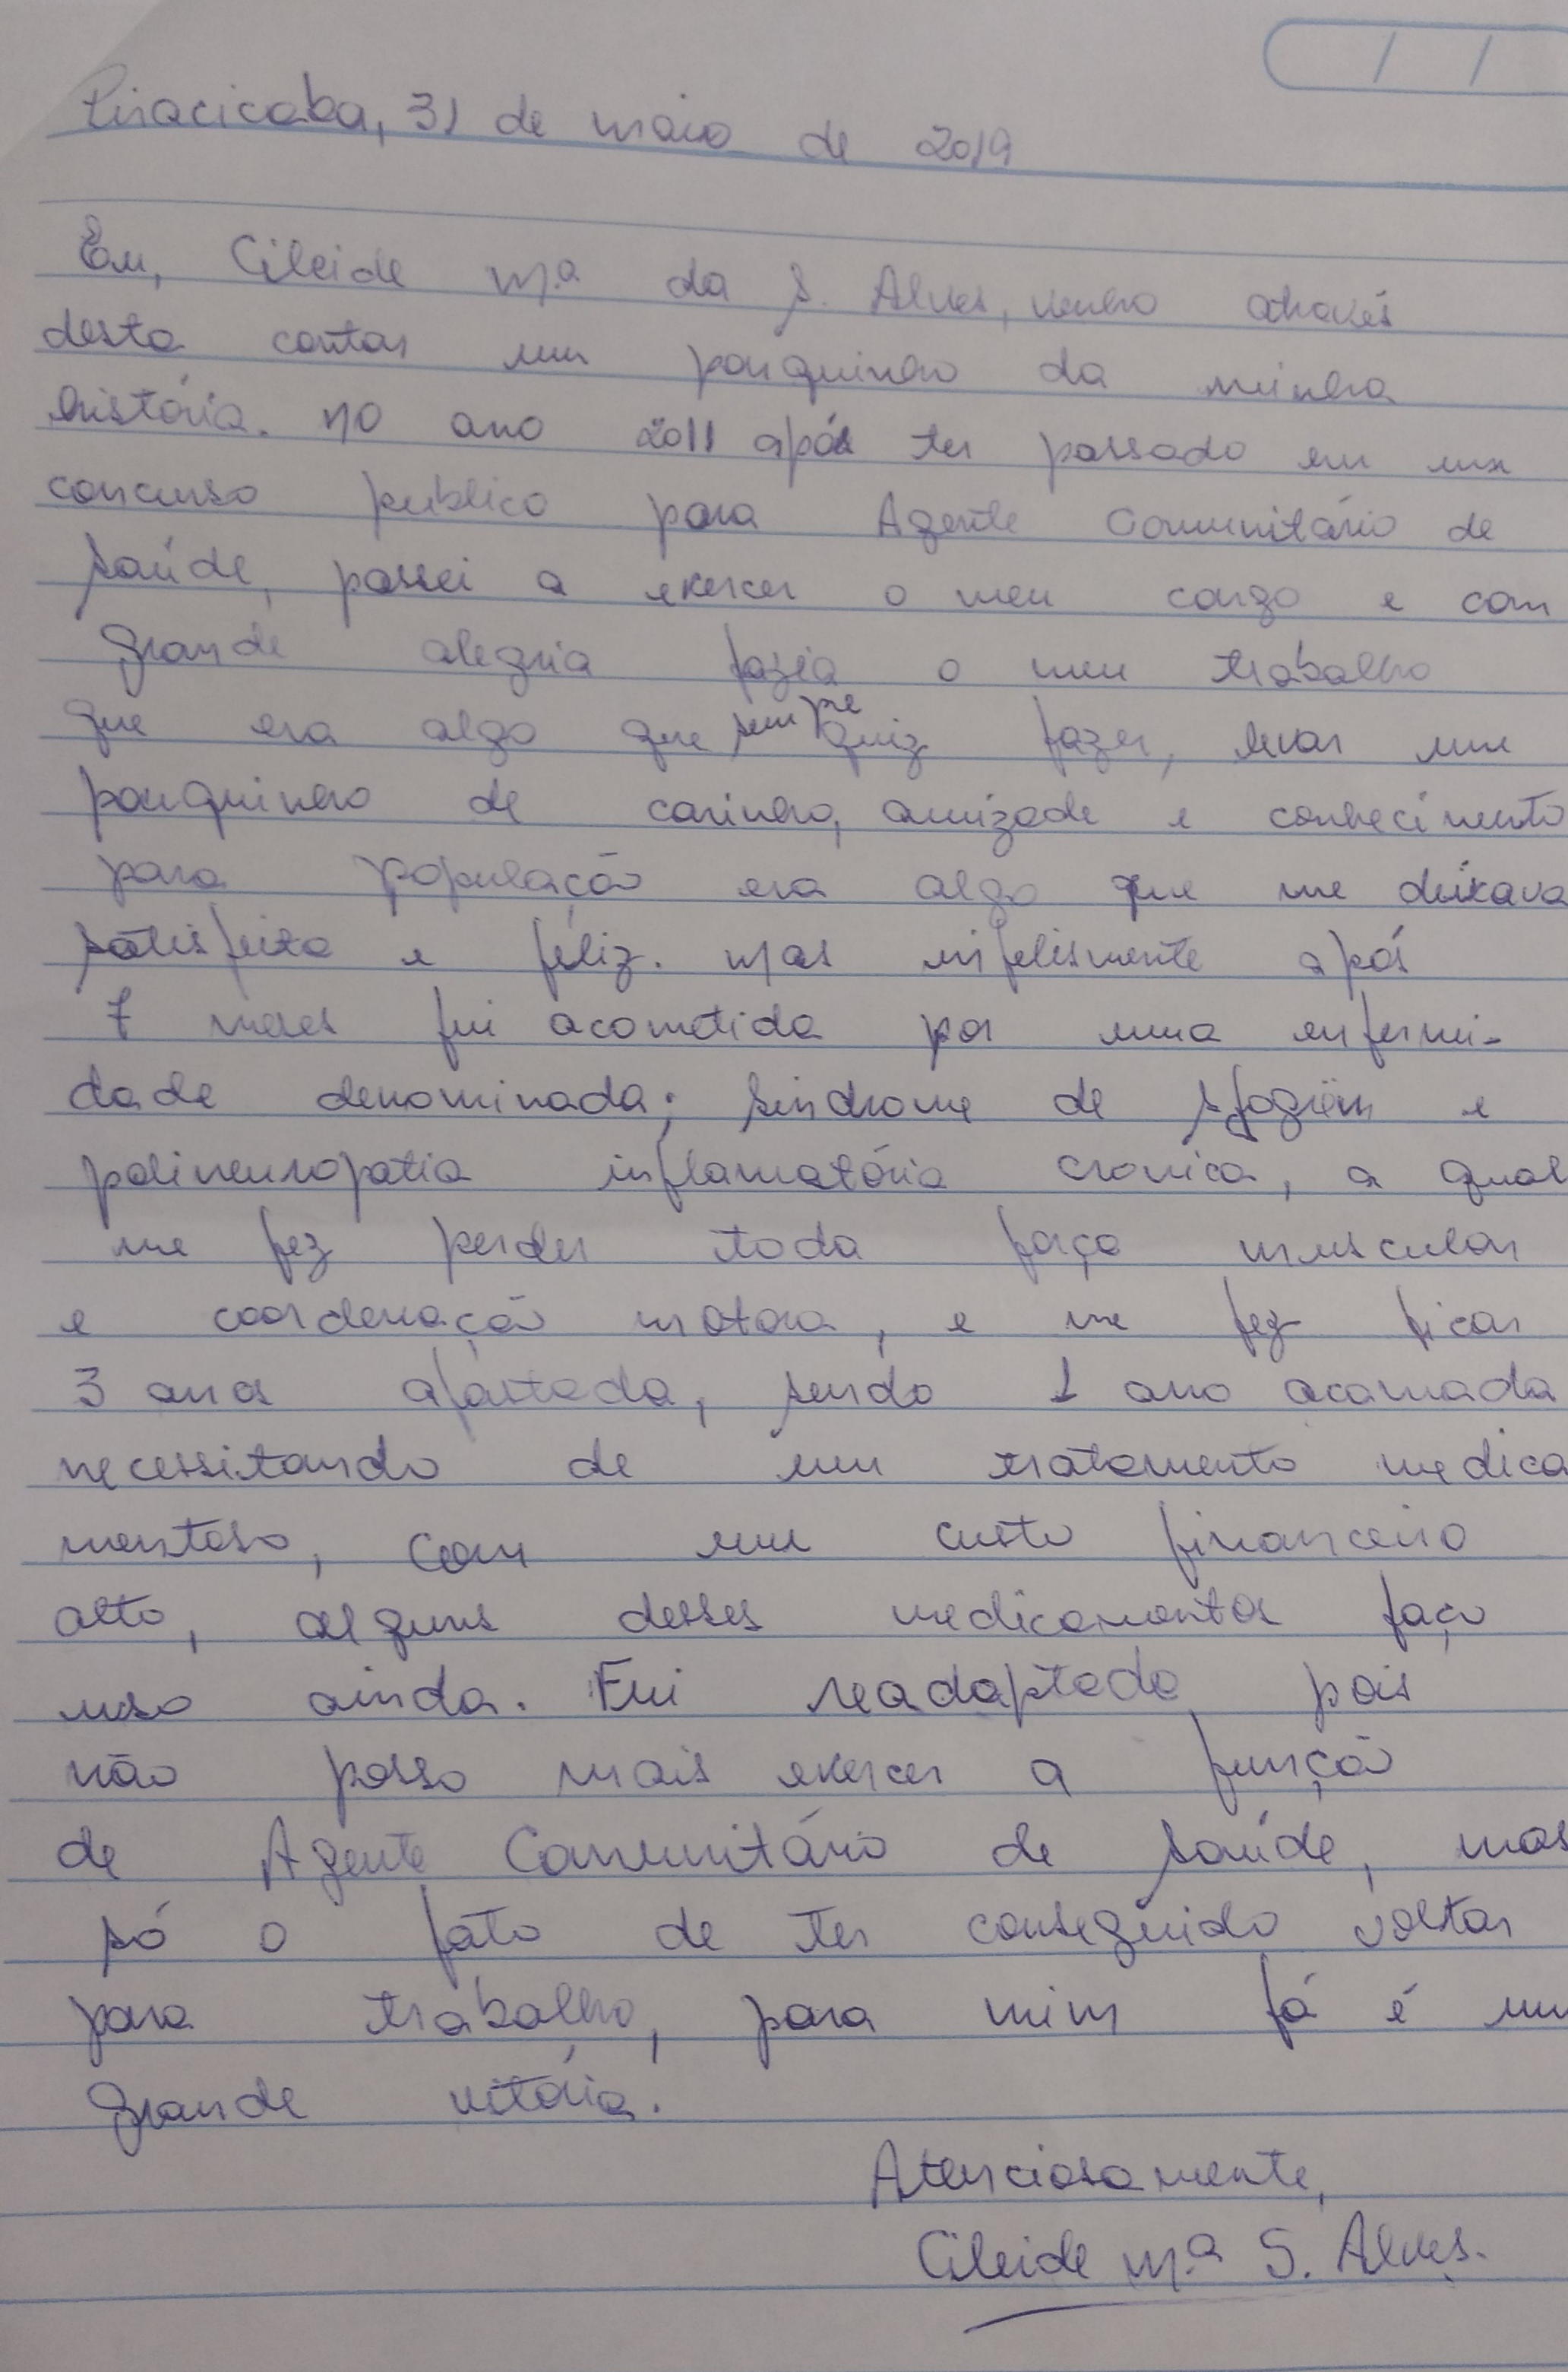 Piracicaba, 31 de maio de 2019
Eu, Cileide Mª da S. Alves, venho através
desta contar um pouquinho da minha
história. No ano 2011 após ter passado em um
concurso publico para Agente Comunitário de
Saúde, passei a exercer o meu cargo e com
grande alegria fazia o meu trabalho
que era algo que sempre quiz fazer, levar um
pouquinho de carinho, amizade e conhecimento
para população era algo que me deixava
satisfeita e féliz. Mas infelismente após
7 meses fui acometida por uma enfermi-
dade denominada; Sindrome de Sjogrën e
polineuropatia inflamatória cronica, a qual
me fez perder toda força muscular
e coordenação motora, e me fez ficar
3 anos afastada, sendo 1 ano acamada
necessitando de um tratamento medica
mentoso, com um custo financeiro
alto, alguns desses medicamentos faço
uso ainda. Fui readaptada pois
não posso mais exercer a função
de Agente Comunitário de Saúde, mas
só o fato de ter conseguido voltar
para trabalho, para mim já é um
grande vitória.
Atenciosamente,
Cileide Mª S. Alves.